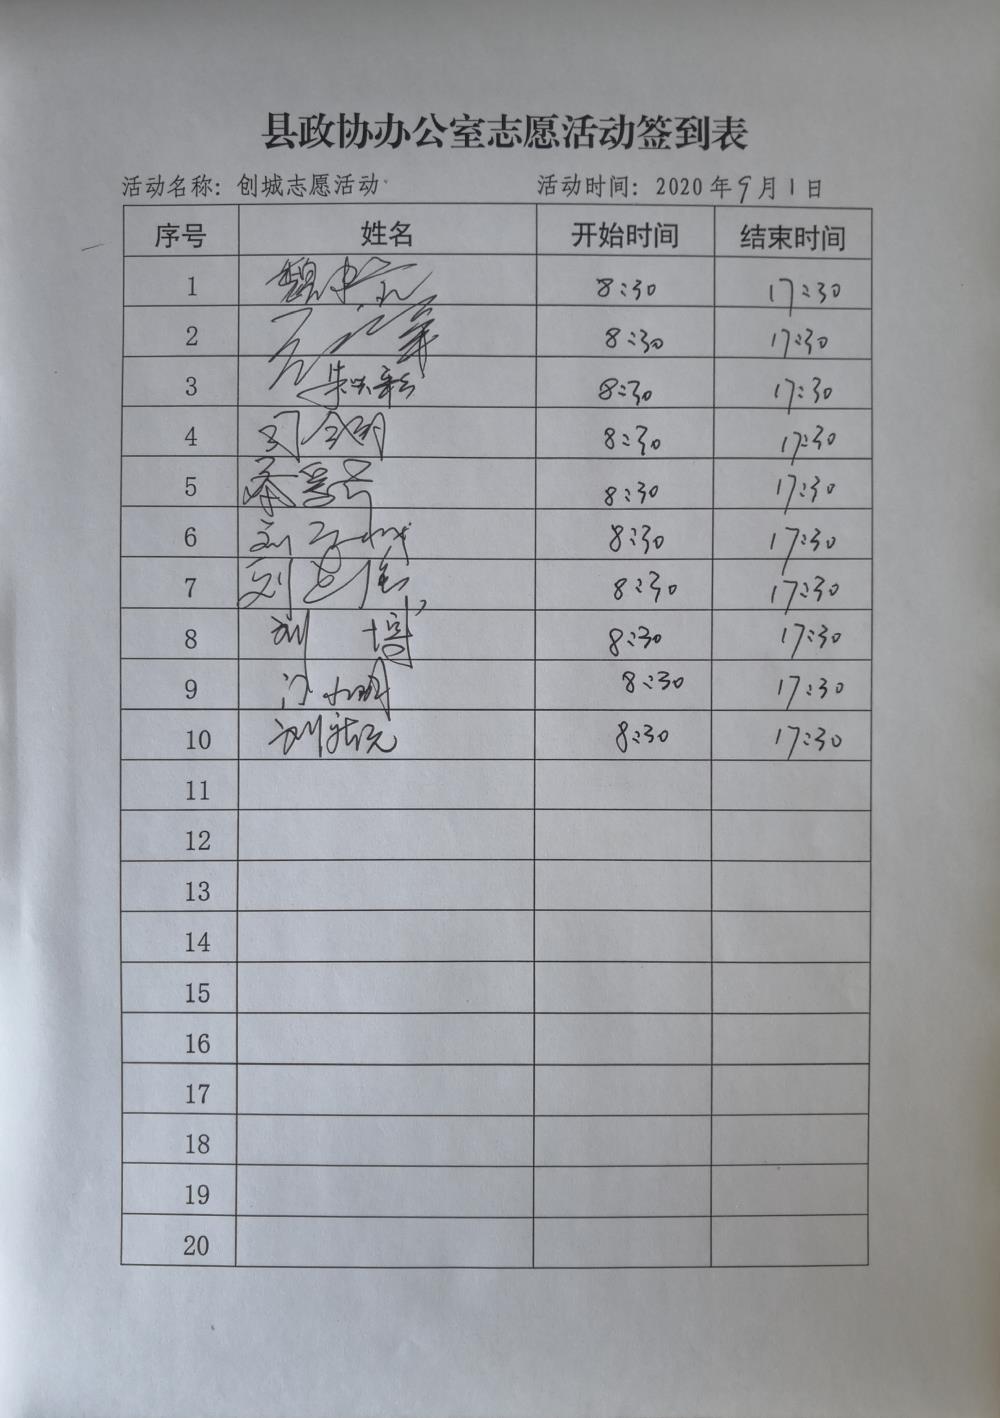 县政协办公室志愿活动签到表
活动名称：创城志愿活动 活动时间：2020年9月1日
序号 姓名 开始时间 结束时间
1 魏 8:30 17:30
2 8:30 17:30
3 朱 8:30 17:30
4 8:30 17:30
5 8:30 17:30
6 刘 8:30 17:30
7 刘 8:30 17:30
8 刘 8:30 17:30
9 8:30 17:30
10 刘 8:30 17:30
11
12
13
14
15
16
17
18
19
20